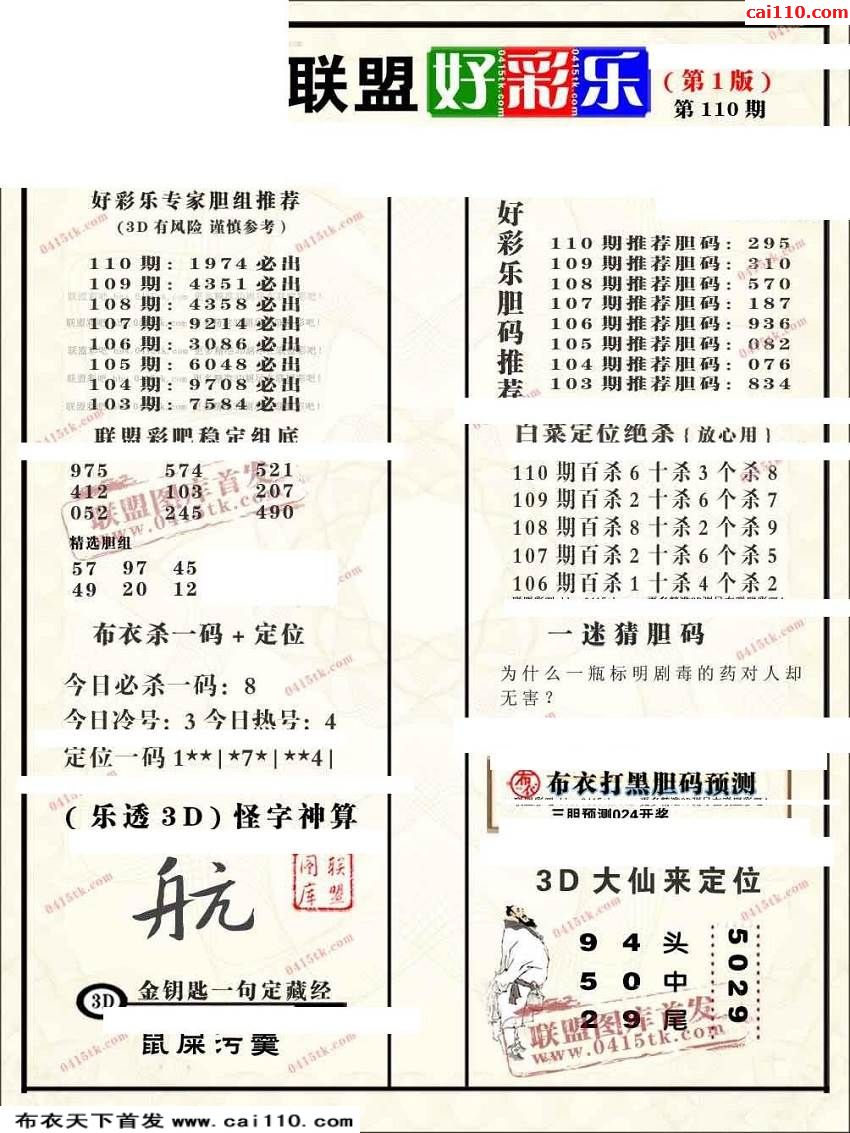 cai110.com
联盟好彩乐
(第1版)
第110期
好彩乐专家胆组推荐
(3D有风险 谨慎参考)
110期: 1974必出
109期: 4351必出
108期: 4358必出
107期: 9214必出
106期: 3086必出
105期: 6048必出
104期: 9708必出
103期: 7584必出
联盟彩吧稳定组底
975 574 521
412 103 207
052 245 490
精选胆组
57 97 45
49 20 12
布衣杀一码+定位
今日必杀一码: 8
今日冷号: 3 今日热号: 4
定位一码 1**|*7*|**4|
(乐透3D)怪字神算
航
联盟图库
3D 金钥匙一句定藏经
鼠屎污羹
好彩乐胆码推荐
110期推荐胆码: 295
109期推荐胆码: 310
108期推荐胆码: 570
107期推荐胆码: 187
106期推荐胆码: 936
105期推荐胆码: 082
104期推荐胆码: 076
103期推荐胆码: 834
白菜定位绝杀{放心用}
110期百杀6十杀3个杀8
109期百杀2十杀6个杀7
108期百杀8十杀2个杀9
107期百杀2十杀6个杀5
106期百杀1十杀4个杀2
一迷猜胆码
为什么一瓶标明剧毒的药对人却
无害?
布衣 布衣打黑胆码预测
三胆预测024开奖
3D大仙来定位
9 4 头
5 0 中
2 9 尾
5029
联盟图库首发
www.0415tk.com
联盟图库首发
www.0415tk.com
布衣天下首发 www.cai110.com